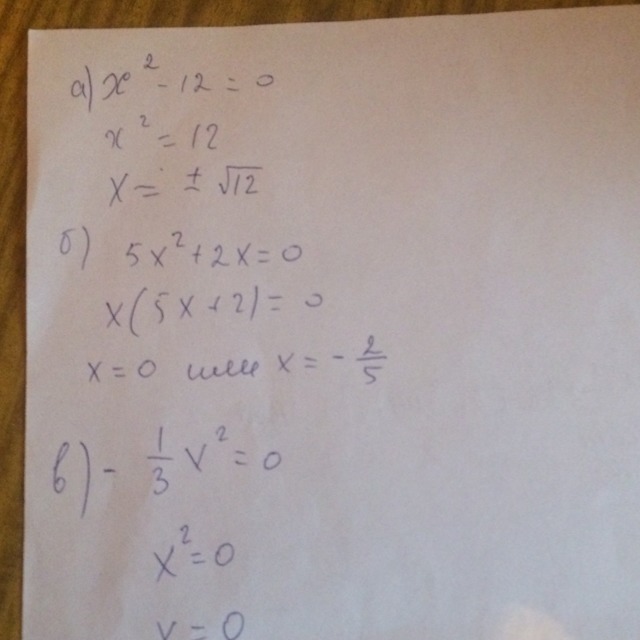 а) x² - 12 = 0
x² = 12
x = ± √12
б) 5x² + 2x = 0
x(5x + 2) = 0
x = 0 или x = - 2/5
в) - 1/3 x² = 0
x² = 0
x = 0